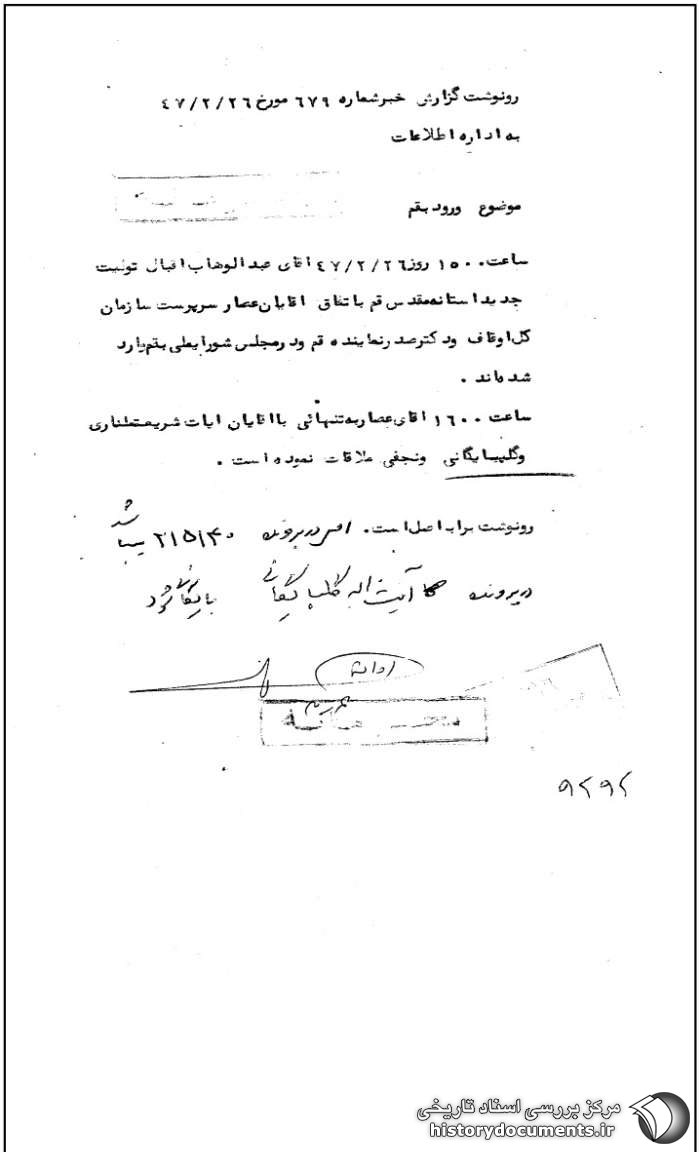 رونوشت گزارش خبر شماره ۶۷۹ مورخ ۴۷/۲/۲۶
به اداره اطلاعات
موضوع ورود بقم
ساعت ۱۵۰۰ روز ۴۷/۲/۲۶ آقای عبدالوهاب اقبال تولیت
جدید استانه مقدس قم باتفاق اقایان عصار سرپرست سازمان
کل اوقاف ودکتر صدر نماینده قم و در مجلس شورایملی بقم وارد
شده‌اند .
ساعت ۱۶۰۰ اقای عصار به تنهائی با اقایان ایات شریعتمداری
وگلپایگانی ونجفی ملاقات نموده است .
رونوشت برابر اصل است. اصل در پرونده ۲۱۵۱۴۰ میباشد
در پرونده آیت اله گلپایگانی بایگانی شود
محرمانه
۹۲۹۲
مرکز بررسی اسناد تاریخی
historydocuments.ir